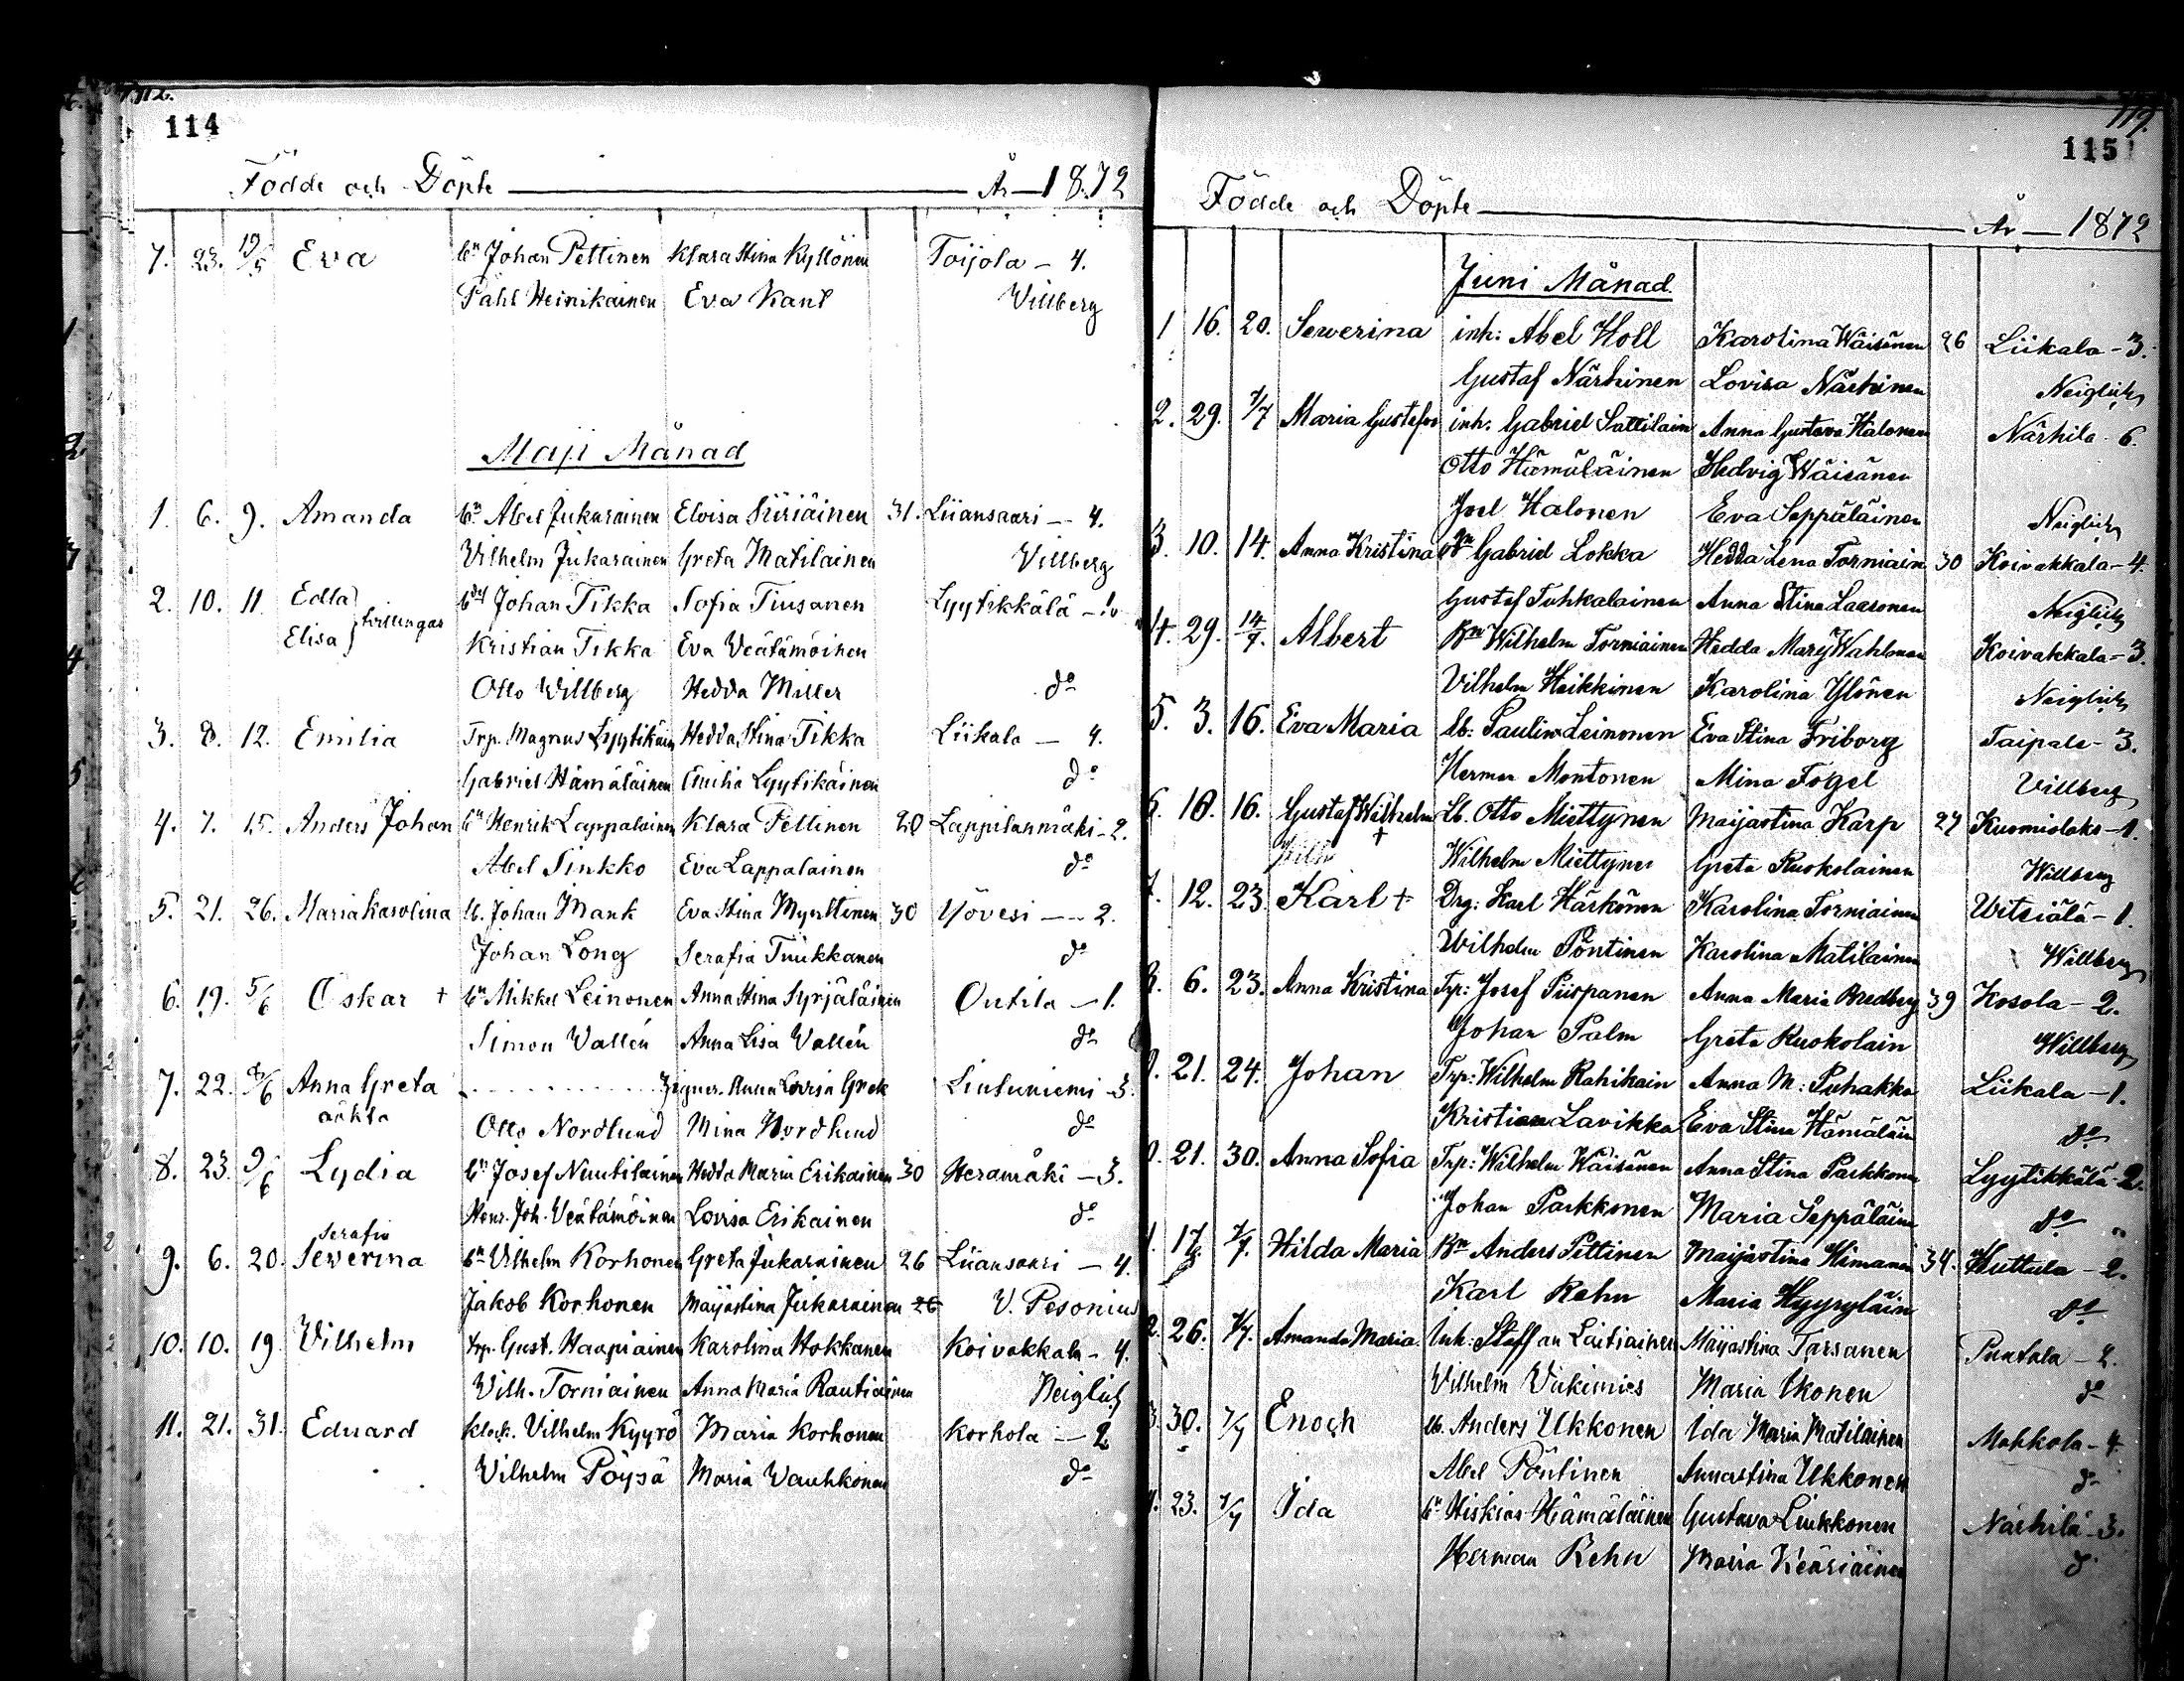 114
Födde och Döpte År 1872
7. 23. 19/5 Eva bn Johan Pettinen Klara Stina Kyllönen Toijola - 4.
Påhl Heinikainen Eva Kant Villberg
Maji Månad
1. 6. 9. Amanda bn Abel Jukarainen Eloisa Siiriäinen 31. Liiansaari - 4.
Vilhelm Jukarainen Greta Matilainen Villberg
2. 10. 11. Edla Elisa } tvillingar Johan Tikka Sofia Tiusanen Lyytikkälä -
Kristian Tikka Eva Veätämöinen
Otto Villberg Hedda Miller do
3. 8. 12. Emilia Trp. Magnus Lyytikäin Hedda Stina Tikka Liikala - 4.
Gabriel Hämäläinen Emilia Lyytikäinen do
4. 7. 15. Anders Johan bn Henrik Lappalainen Klara Pettinen 20 Lappilanmäki - 2.
Abel Sinkko Eva Lappalainen do
5. 21. 26. Maria Karolina lb. Johan Mank Eva Stina Myrttinen 30 Yövesi - 2.
Johan Long Serafia Tuukkanen do
6. 19. 5/6 Oskar + bn Mikkel Leinonen Anna Stina Syrjäläinen Outila - 1.
Simon Vallén Anna Lisa Vallén do
7. 22. /6 Anna Greta oäkta Anna Lovisa Grek Lintuniemi 3.
Otto Nordlund Mina Nordlund do
8. 23. 9/6 Lydia bn Josef Nuutilainen Hedda Maria Erikainen 30 Heramäki - 3.
Henr. Joh. Veätämöinen Lovisa Erikainen do
Serafia
9. 6. 20. Severina bn Vilhelm Korhonen Greta Jukarainen 26 Liiansaari - 4.
Jakob Korhonen Maijastina Jukarainen 26 V. Pesonius
10. 10. 19. Vilhelm trp. Gust. Haapiainen Karolina Hokkanen Koivakkala - 4.
Vilh. Torniainen Anna Maria Rautiainen Neiglick
11. 21. 31. Eduard klock. Vilhelm Kyyrö Maria Korhonen Korhola - 2
Vilhelm Pöysä Maria Vauhkonen do
115
Födde och Döpte År 1872
Juni Månad
1 16. 20. Sewerina inh: Abel Holl Karolina Wäisänen 26 Liikala - 3.
Gustaf Närhinen Lovisa Närhinen Neiglick
2. 29. 7/7 Maria Gustafva inh. Gabriel Sattilain Anna Gustava Halonen Närhilä 6.
Otto Hämäläinen Hedvig Wäisänen
Joel Halonen Eva Seppäläinen Neiglick
3. 10. 14. Anna Kristina Bn Gabriel Lokka Hedda Lena Torniain 30 Koivakkala - 4.
Gustaf Tuhkalainen Anna Stina Laasonen Neiglick
4. 29. 14/7. Albert Bn Wilhelm Torniainen Hedda Mary Wahlman Koivakkala - 3.
Vilhelm Heikkinen Karolina Ylönen Neiglick
5. 3. 16. Eva Maria lb. Paulin Leinonen Eva Stina Friborg Taipale - 3.
Herman Montonen Mina Fogel Villberg
6. 10. 16. Gustaf Wilhelm + Lb. Otto Miettynen Maijastina Karp 27 Kuomiolaks - 1.
Wilhelm Miettynen Greta Ruokolainen Willberg
7. 12. 23. Karl + Drg: Karl Härkönen Karolina Torniainen Witsiälä - 1.
Wilhelm Pöntinen Karolina Matilainen Willberg
8. 6. 23. Anna Kristina Trp: Josef Piispanen Anna Maria Bredberg 39 Kosola - 2.
Johan Palm Greta Ruokolain Willberg
21. 24. Johan Trp: Wilhelm Rahikain Anna M: Puhakka Liikala - 1.
Kristian Lavikka Eva Stina Hämäläin do
21. 30. Anna Sofia Trp: Wilhelm Wäisänen Anna Stina Parkkonen Lyytikkälä 2.
Johan Parkkonen Maria Seppäläin do
17. 7/7. Hilda Maria Bn Anders Pettinen Maijastina Himanen 34. Huttula - 2.
Karl Rehn Maria Hyyryläin do
26. 7/7. Amanda Maria Inh: Staffan Laitiainen Maijastina Tarsanen Puntala - 2.
Vilhelm Viikimies Maria Ikonen do
3. 30. 7/7 Enoch lb. Anders Ukkonen Ida Maria Matilainen Mahkola - 4.
Abel Pöntinen Annastina Ukkonen do
23. 7/7 Ida bn Hiskias Hämäläinen Gustava Liukkonen Närhilä - 3.
Herman Rehn Maria Keäriäinen